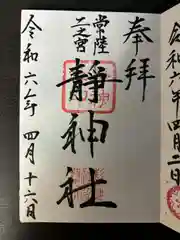 奉拝
常陸
二之宮
靜神社
令和六年
四月十六日
令和六年四月二日